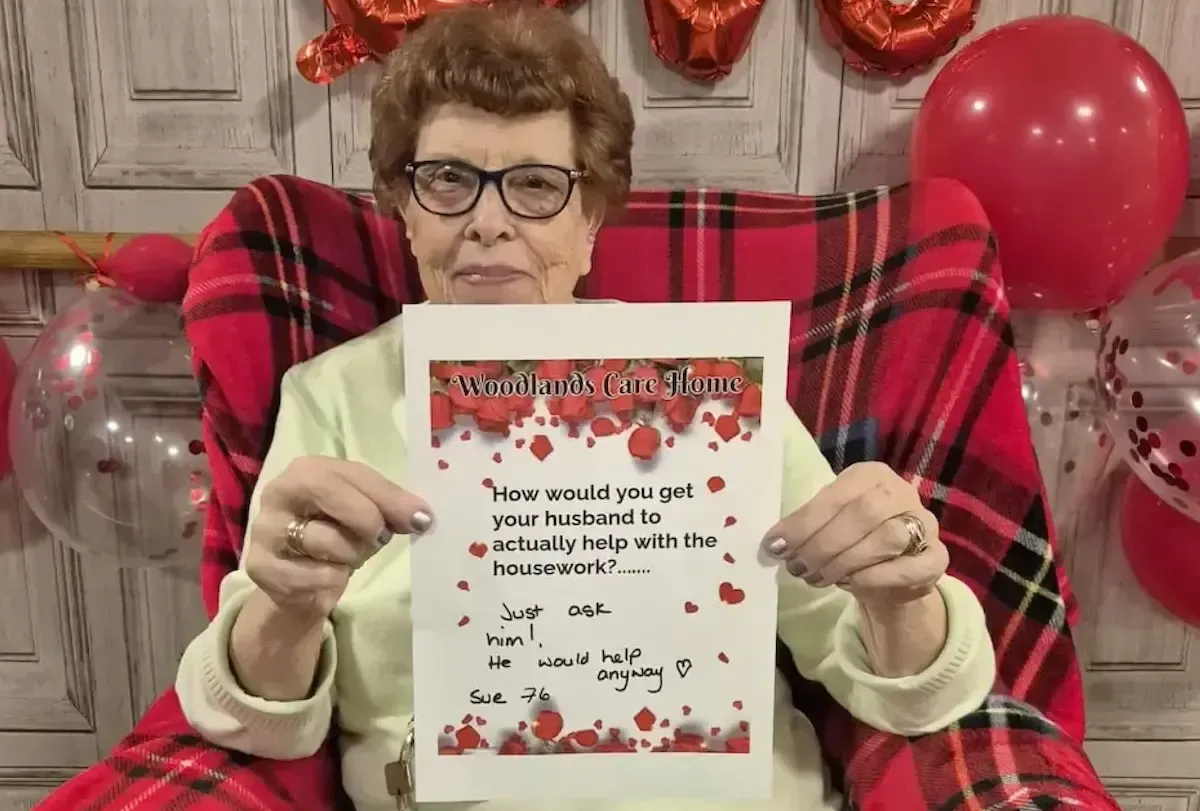 Woodlands Care Home
How would you get
your husband to
actually help with the
housework?.......
Just ask
him!
He would help
anyway ♡
Sue 76